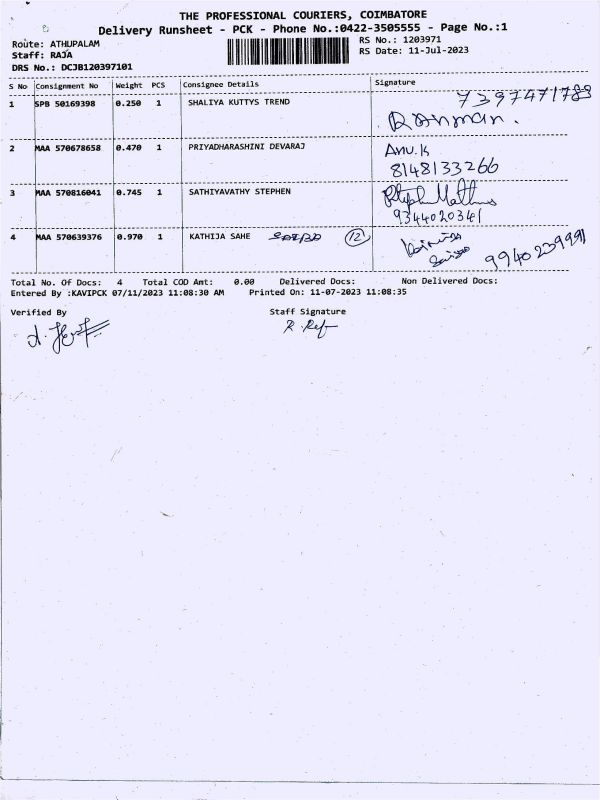 THE PROFESSIONAL COURIERS, COIMBATORE
Delivery Runsheet - PCK - Phone No.:0422-3505555 - Page No.:1
Route: ATHUPALAM
Staff: RAJA
DRS No.: DCJB120397101
RS No.: 1203971
RS Date: 11-Jul-2023
S No Consignment No Weight PCS Consignee Details Signature
1 SPB 50169398 0.250 1 SHALIYA KUTTYS TREND 7397471783
Rahman.
2 MAA 570678658 0.470 1 PRIYADHARASHINI DEVARAJ Anu.k
8148133266
3 MAA 570816041 0.745 1 SATHIYAVATHY STEPHEN
9344020341
4 MAA 570639376 0.970 1 KATHIJA SAHE 12
9940239991
Total No. Of Docs: 4 Total COD Amt: 0.00 Delivered Docs: Non Delivered Docs:
Entered By :KAVIPCK 07/11/2023 11:08:30 AM Printed On: 11-07-2023 11:08:35
Verified By Staff Signature